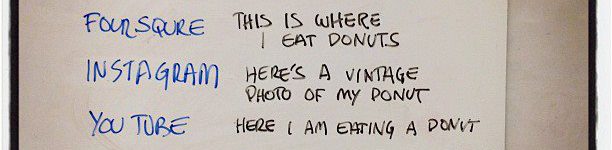 FOURSQURE THIS IS WHERE
I EAT DONUTS
INSTAGRAM HERE'S A VINTAGE
PHOTO OF MY DONUT
YOU TUBE HERE I AM EATING A DONUT